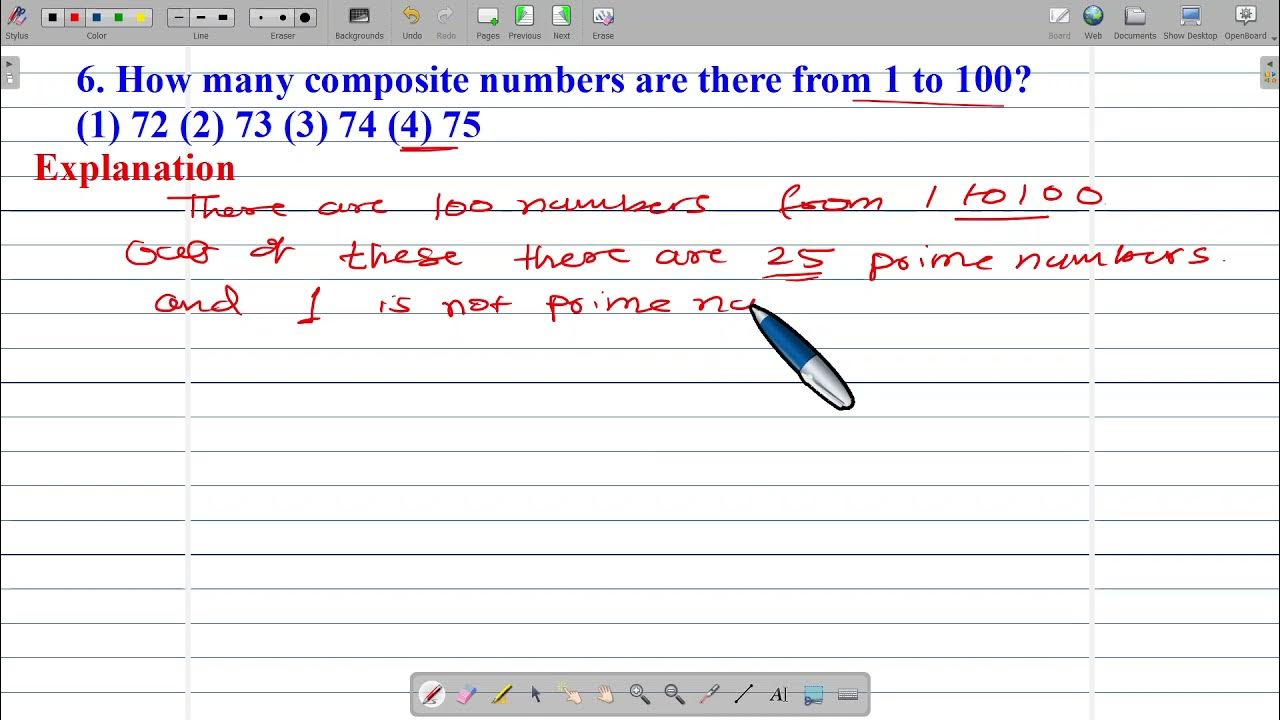 Stylus Color Line Eraser Backgrounds Undo Redo Pages Previous Next Erase Board Web Documents Show Desktop OpenBoard
6. How many composite numbers are there from 1 to 100?
(1) 72 (2) 73 (3) 74 (4) 75
Explanation
There are 100 numbers from 1 to 100
Out of these there are 25 prime numbers.
and 1 is not prime nu
AI